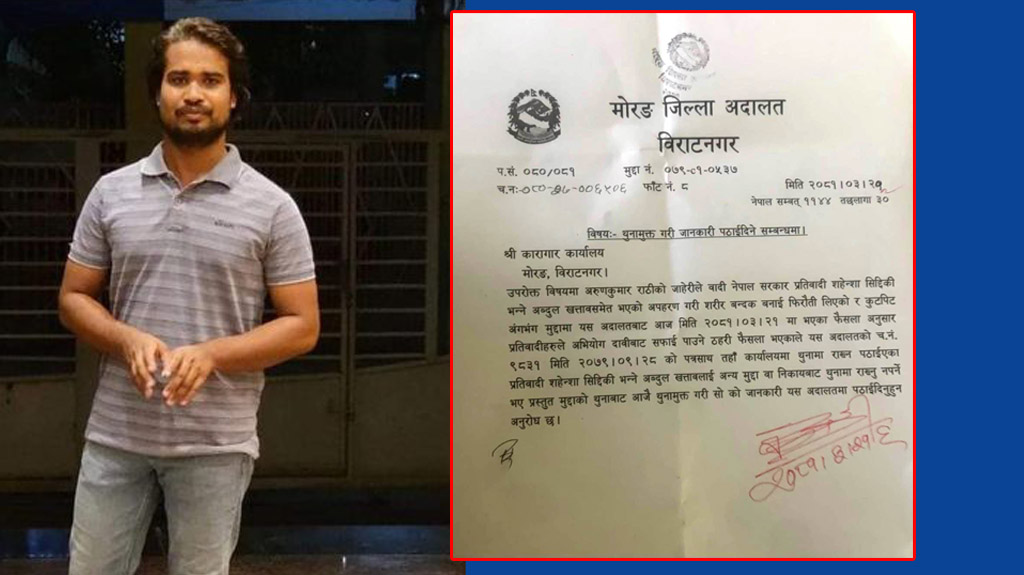 मोरङ जिल्ला अदालत
विराटनगर
प.सं. ०८०/०८१ मुद्दा नं. ०७९-C१-०५३७
च.न:- फाँट नं. ८ मिति २०८१।०३।२१
नेपाल सम्बत् ११४४ तछलागा ३०
विषयः- थुनामुक्त गरी जानकारी पठाईदिने सम्बन्धमा।
श्री कारागार कार्यालय
मोरङ, विराटनगर।
उपरोक्त विषयमा अरुणकुमार राठीको जाहेरीले वादी नेपाल सरकार प्रतिवादी शहेन्शा सिद्दिकी
भन्ने अब्दुल खत्तावसमेत भएको अपहरण गरी शरीर बन्धक बनाई फिरौती लिएको र कुटपिट
अंगभंग मुद्दामा यस अदालतबाट आज मिति २०८१।०३।२१ मा भएका फैसला अनुसार
प्रतिवादीहरुले अभियोग दाबीबाट सफाई पाउने ठहरी फैसला भएकाले यस अदालतको च.नं.
९८३१ मिति २०७९।०९।२८ को पत्रसाथ तहाँ कार्यालयमा थुनामा राख्न पठाईएका
प्रतिवादी शहेन्शा सिद्दिकी भन्ने अब्दुल खत्तावलाई अन्य मुद्दा वा निकायबाट थुनामा राख्नु नपर्ने
भए प्रस्तुत मुद्दाको थुनाबाट आजै थुनामुक्त गरी सो को जानकारी यस अदालतमा पठाईदिनुहुन
अनुरोध छ।